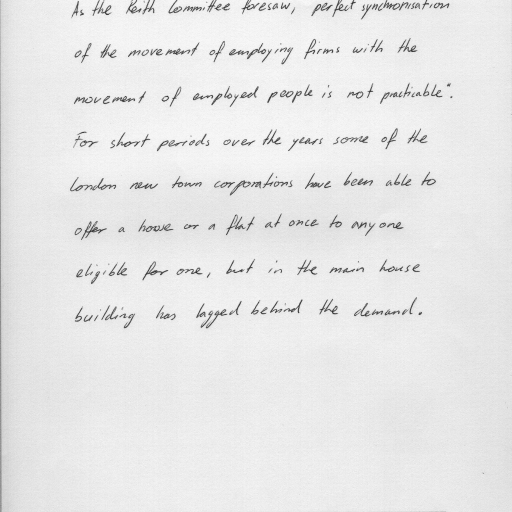 As the Reith Committee foresaw, perfect synchronisation
of the movement of employing firms with the
movement of employed people is not practicable".
For short periods over the years some of the
London new town corporations have been able to
offer a house or a flat at once to anyone
eligible for one, but in the main house
building has lagged behind the demand.